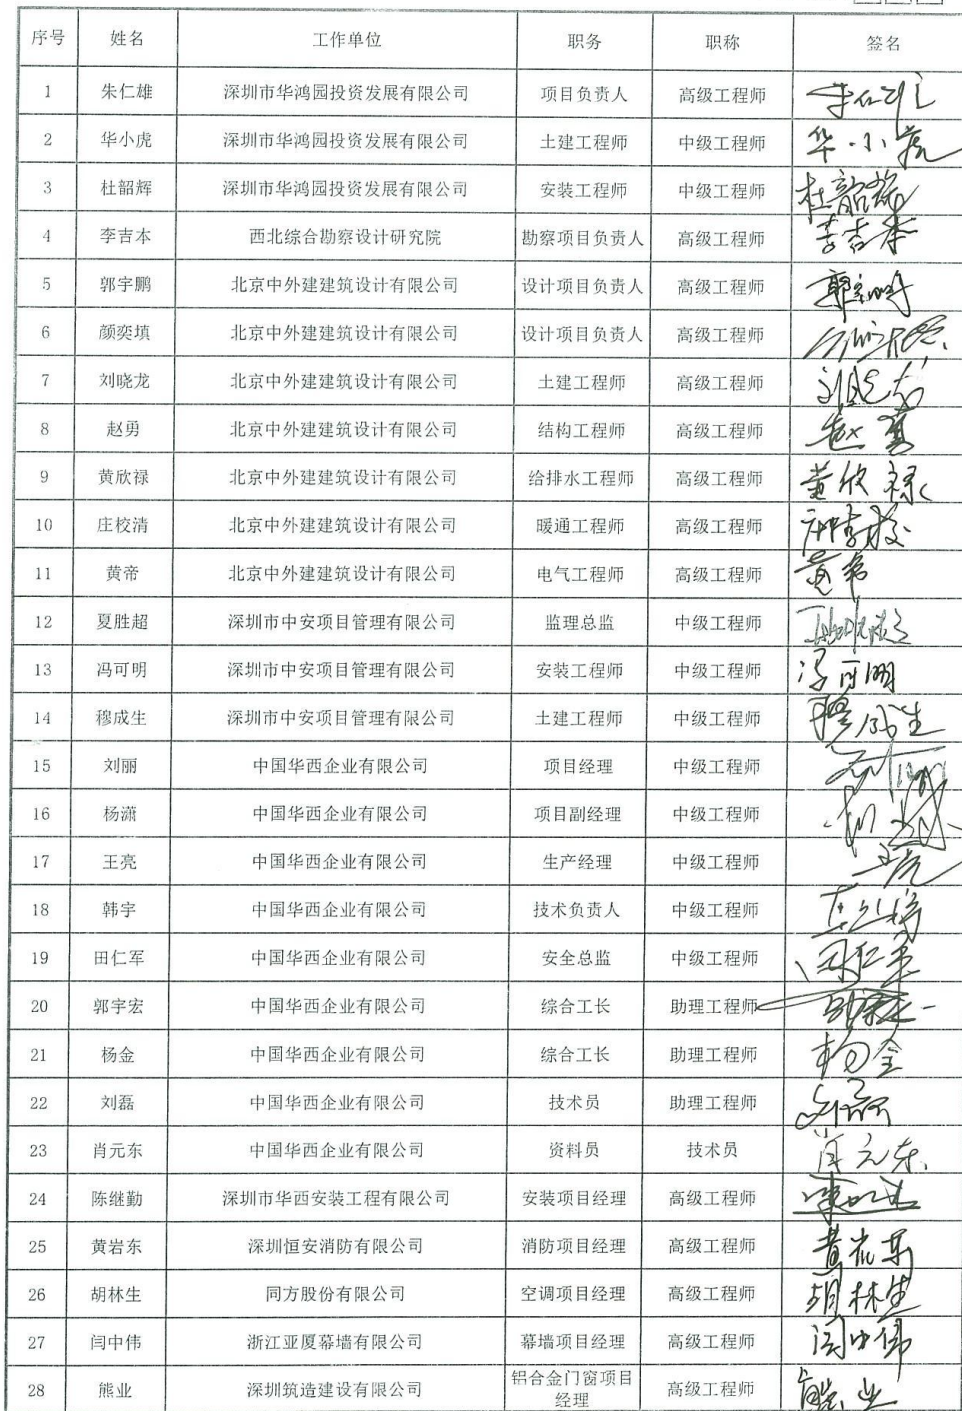 序号 姓名 工作单位 职务 职称 签名
1 朱仁雄 深圳市华鸿园投资发展有限公司 项目负责人 高级工程师 朱仁雄
2 华小虎 深圳市华鸿园投资发展有限公司 土建工程师 中级工程师 华小虎
3 杜韶辉 深圳市华鸿园投资发展有限公司 安装工程师 中级工程师 杜韶辉
4 李吉本 西北综合勘察设计研究院 勘察项目负责人 高级工程师 李吉本
5 郭宇鹏 北京中外建建筑设计有限公司 设计项目负责人 高级工程师 郭宇鹏
6 颜奕填 北京中外建建筑设计有限公司 设计项目负责人 高级工程师
7 刘晓龙 北京中外建建筑设计有限公司 土建工程师 高级工程师 刘晓龙
8 赵勇 北京中外建建筑设计有限公司 结构工程师 高级工程师 赵勇
9 黄欣禄 北京中外建建筑设计有限公司 给排水工程师 高级工程师 黄欣禄
10 庄校清 北京中外建建筑设计有限公司 暖通工程师 高级工程师
11 黄帝 北京中外建建筑设计有限公司 电气工程师 高级工程师 黄帝
12 夏胜超 深圳市中安项目管理有限公司 监理总监 中级工程师
13 冯可明 深圳市中安项目管理有限公司 安装工程师 中级工程师 冯可明
14 穆成生 深圳市中安项目管理有限公司 土建工程师 中级工程师 穆成生
15 刘丽 中国华西企业有限公司 项目经理 中级工程师
16 杨潇 中国华西企业有限公司 项目副经理 中级工程师
17 王亮 中国华西企业有限公司 生产经理 中级工程师 王亮
18 韩宇 中国华西企业有限公司 技术负责人 中级工程师
19 田仁军 中国华西企业有限公司 安全总监 中级工程师 田仁军
20 郭宇宏 中国华西企业有限公司 综合工长 助理工程师
21 杨金 中国华西企业有限公司 综合工长 助理工程师 杨金
22 刘磊 中国华西企业有限公司 技术员 助理工程师 刘磊
23 肖元东 中国华西企业有限公司 资料员 技术员 肖元东
24 陈继勤 深圳市华西安装工程有限公司 安装项目经理 高级工程师
25 黄岩东 深圳恒安消防有限公司 消防项目经理 高级工程师 黄岩东
26 胡林生 同方股份有限公司 空调项目经理 高级工程师 胡林生
27 闫中伟 浙江亚厦幕墙有限公司 幕墙项目经理 高级工程师 闫中伟
28 熊业 深圳筑造建设有限公司 铝合金门窗项目经理 高级工程师 熊业